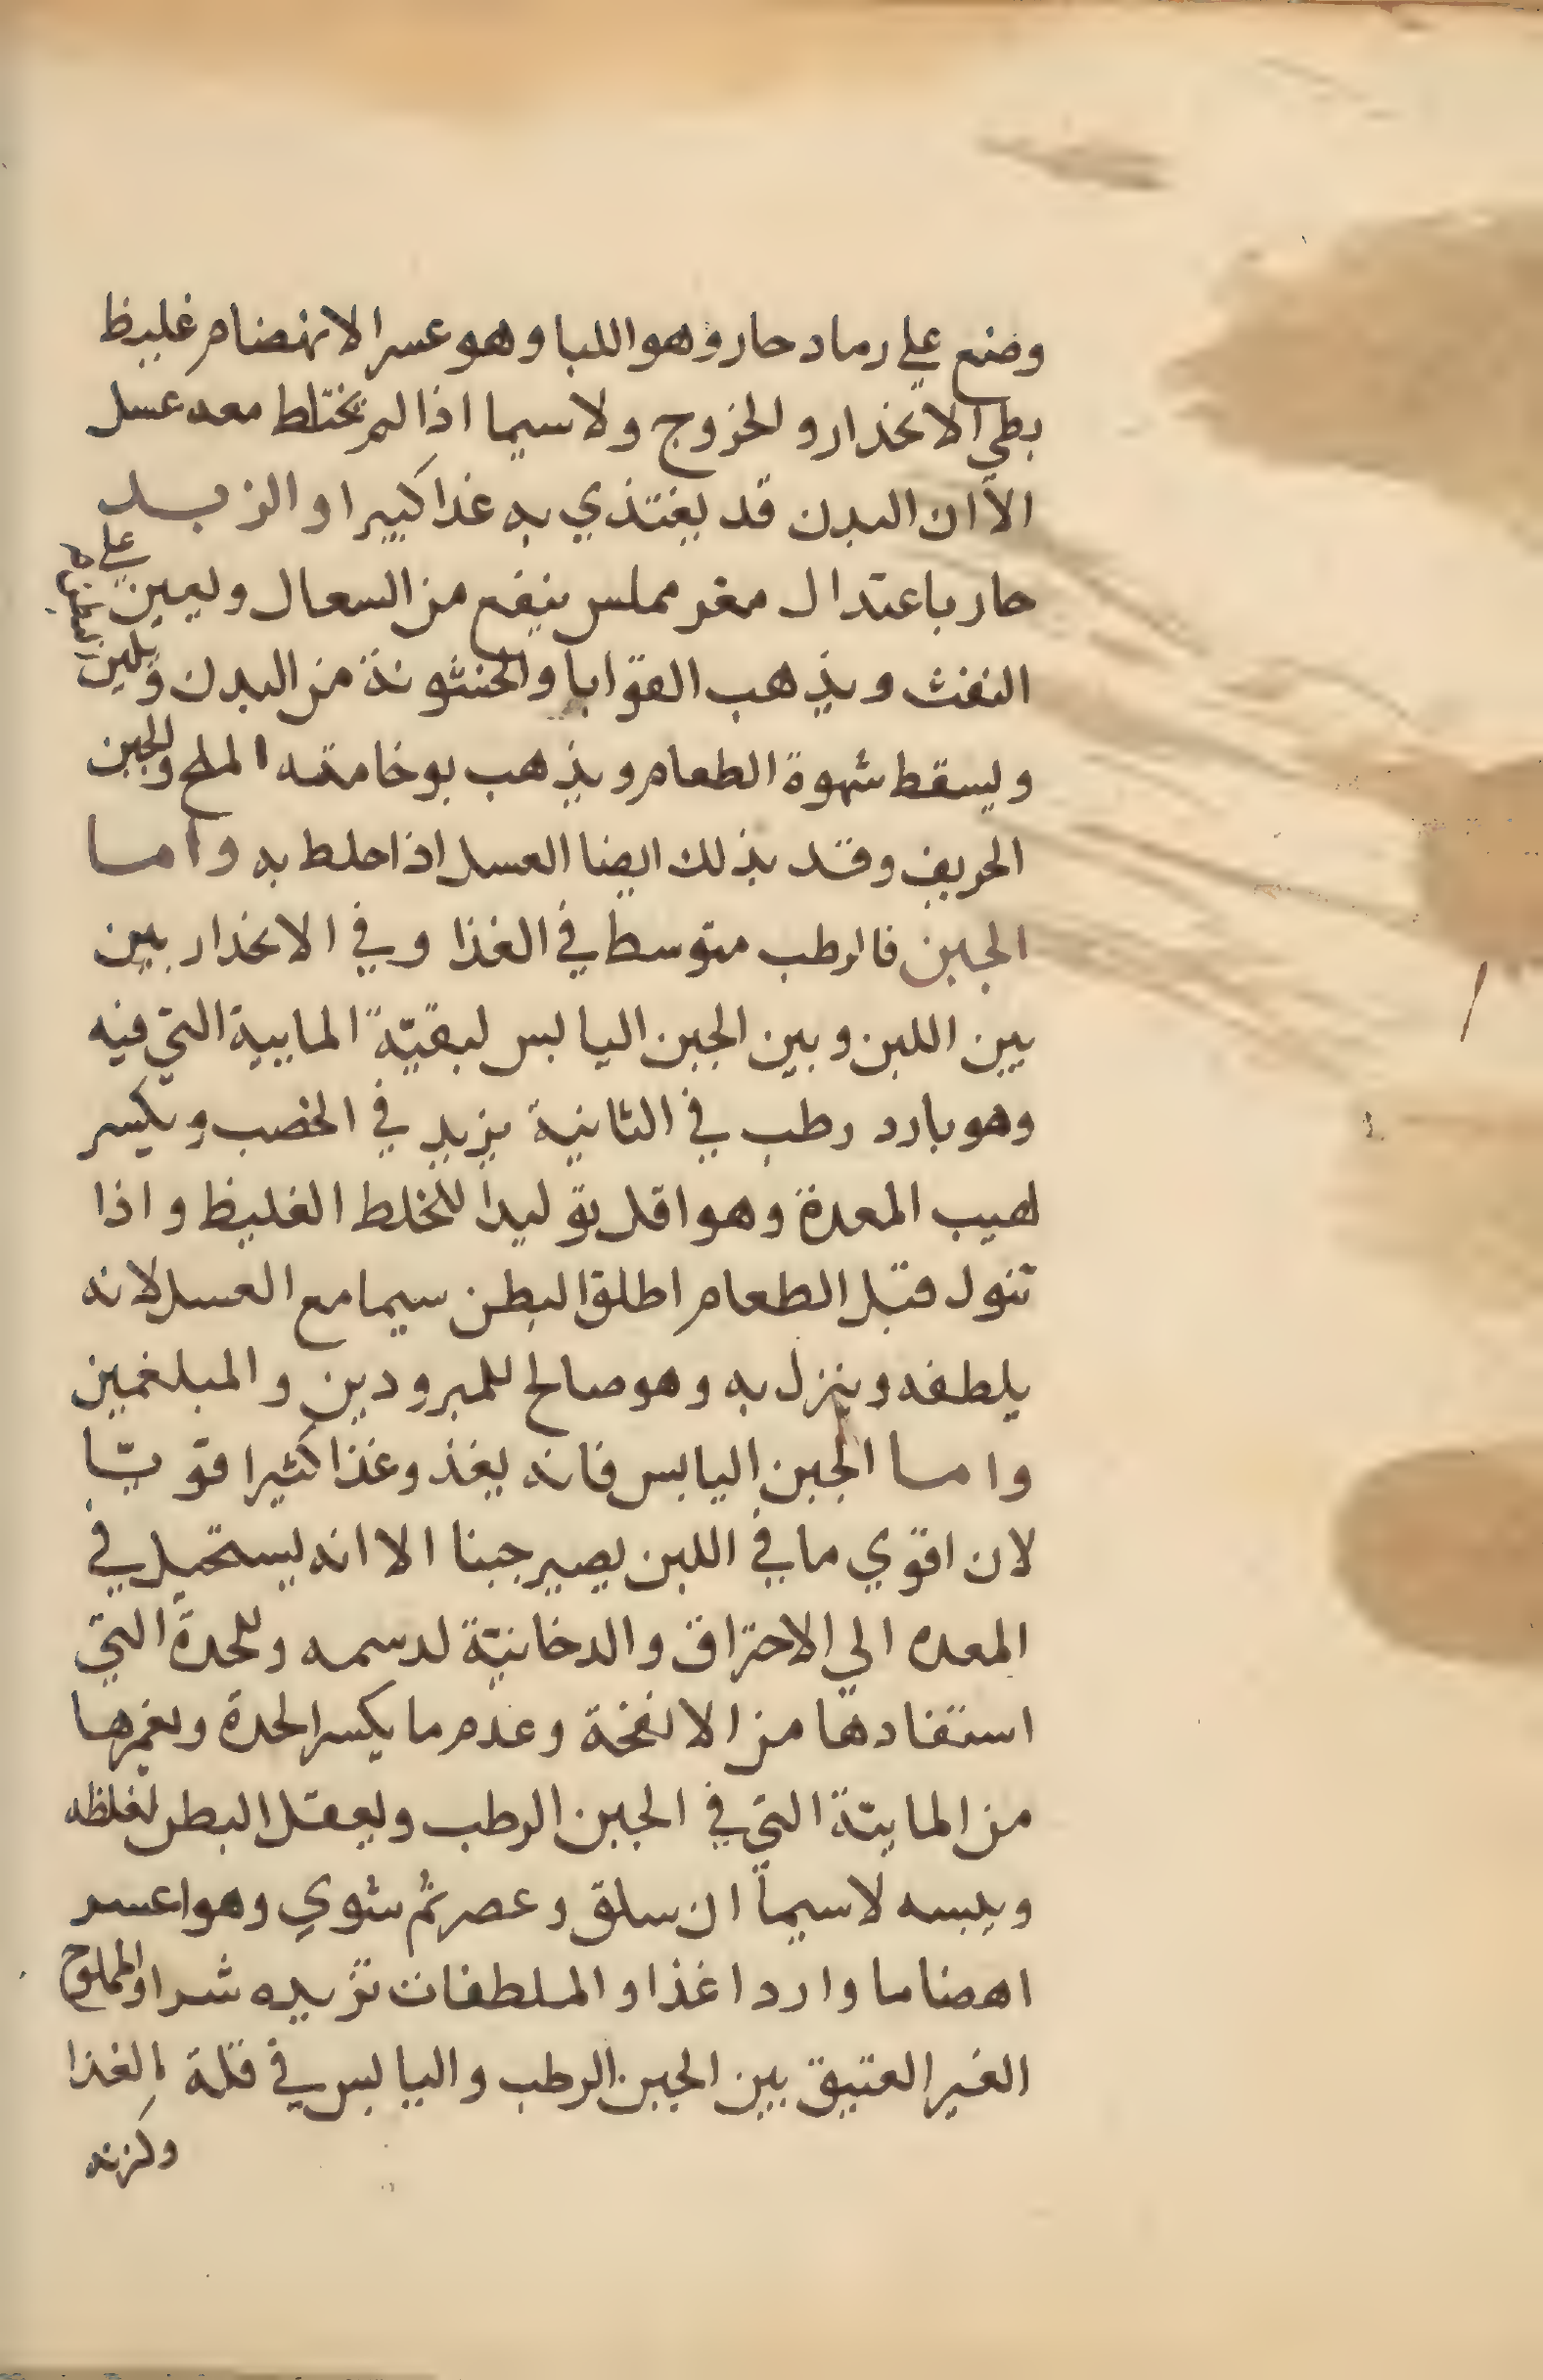 وضع علي رماد حار وهو اللبا وهو عسر الانهضام غليظ
بطي الانحدار والخروج ولاسيما اذا لم يختلط معه عسل
الا ان البدن قد يغتذي به غذا كبيرا والزبد
حار باعتدال مغر مملس ينفع من السعال ويعين علي
النفث ويذهب القوابا والخشونة من البدن ويلين
ويسقط شهوة الطعام ويذهب بوخامته الملح والجبن
الحريف وقد يذلك ايضا العسل اذا حلط به واما
الجبن فالرطب متوسط في الغذا وفي الانحدار بين
بين اللبن وبين الجبن اليابس لبقيّة المايية التي فيه
وهو بارد رطب في الثانية يزيد في الخصب ويكسر
لهيب المعدة وهو اقل توليدا للخلط الغليظ واذا
تنول قبل الطعام اطلق البطن سيما مع العسل لانه
يلطفه وينزل به وهو صالح للمبرودين والمبلغمين
واما الجبن اليابس فانه يغذ وغذا كثيرا قويّا
لان اقوي ما في اللبن يصير جبنا الا انه يستحيل في
المعده الي الاحتراق والدخانيّة لدسمه وللحدة التي
استفادها من الانفخة وعدم ما يكسر الحدة ويغمرها
من المايّة التي في الجبن الرطب ويعقل البطن لغلظه
ويبسه لاسيما ان سلق وعصر ثم شوي وهو اعسر
اهضاما واردا غذا والملطفات تزيده شرا والمملوح
الغير العتيق بين الجبن الرطب واليابس في قلة الغذا